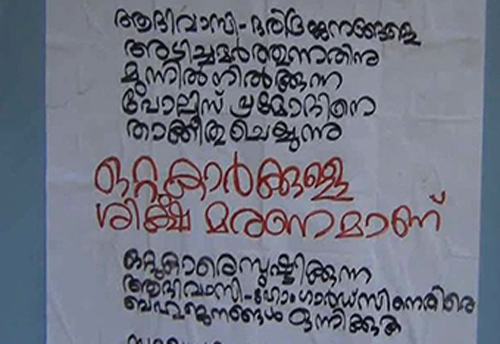 ആദിവാസി-ദരിദ്രജനങ്ങളെ
അടിച്ചമർത്തുന്നതിനു
മുന്നിൽനിൽക്കുന്ന
പോലീസ് പ്രമോദിനെ
താക്കീതുചെയ്യുന്നു
ഒറ്റുകാർക്കുള്ള
ശിക്ഷ മരണമാണ്
ഒറ്റുകാരെസൃഷ്ടിക്കുന്ന
ആദിവാസി-ഹോംഗാർഡ്സിനെതിരെ
ബഹുജനങ്ങൾ ഒന്നിക്കുക